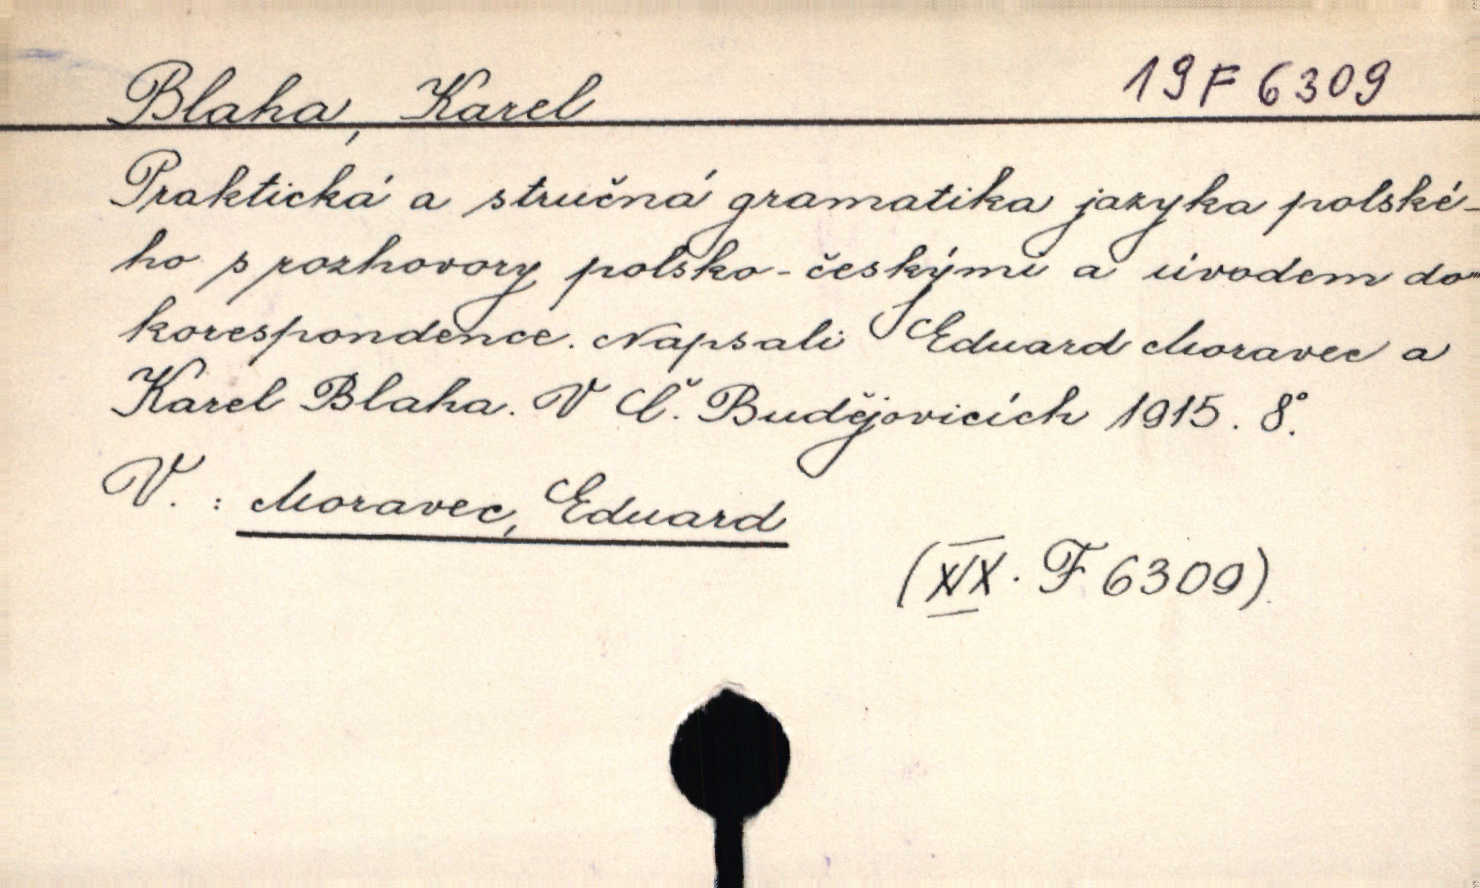 19 F 6309
Blaha, Karel
Praktická a stručná gramatika jazyka polské-
ho s rozhovory polsko-českými a úvodem do
korespondence. Napsali Eduard Moravec a
Karel Blaha. V Č. Budějovicích 1915. 8°.
V. : Moravec, Eduard
(XIX. F 6309)